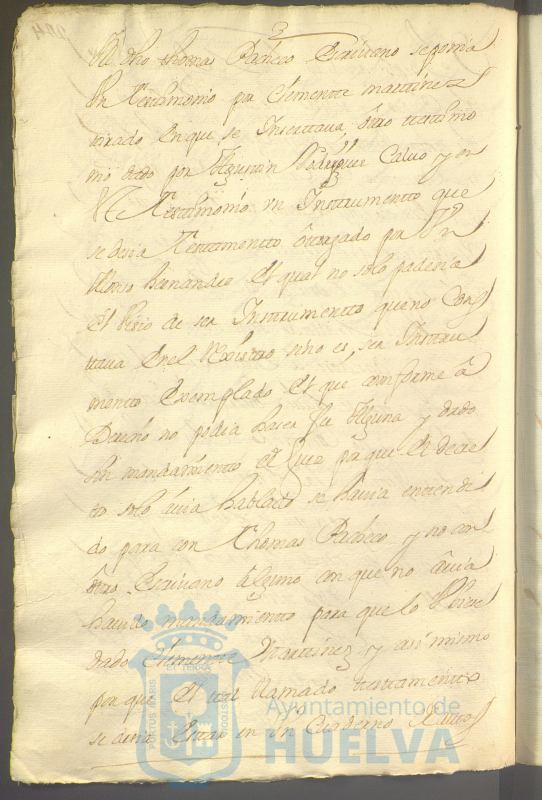 El dho thomas Pacheco Scriuano se ponia
Un testimonio por Clemente martinez
tirado En que se Insertaua, otro testimo
nio dado por Agustin Rodriguez Calvo y en
el testimonio vn Instrumento que
se decia testamento otorgado por Un
Alonso hernandez El qual no solo padesia
El Visio de ser Instrumento que no Cons
taua En el Rexistro sino es, ser Instru
mento exemplado El que conforme á
Derecho no podia hacer fee Alguna y dado
sin mandamiento de Juez porque El decre
to solo áuia hablado se hauia entendi
do para con Thomas Pacheco y no con
otro Scriuano alguno con que no áuia
hauido mandamiento para que lo Uviese
dado Clemente Martinez y asi mismo
por que El tal llamado testamento
se decia Estar en Un Cuaderno suelto
Ayuntamiento de
HUELVA